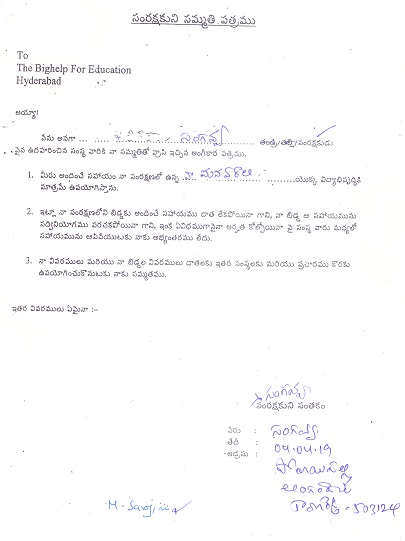 సంరక్షకుని సమ్మతి పత్రము
To
The Bighelp For Education
Hyderabad
అయ్యా!
నేను అనగా ..... సంగవ్వ ..... తండ్రి/తల్లి/సంరక్షకుడు
పైన ఉదహరించిన సంస్థ వారికి నా సమ్మతితో వ్రాసి ఇచ్చిన అంగీకార పత్రము.
1. మీరు అందించే సహాయం నా సంరక్షణలో ఉన్న ..... యొక్క విద్యాభివృద్ధికి
మాత్రమే ఉపయోగిస్తాను.
2. ఇట్లా నా సంరక్షణలోని బిడ్డకు అందించే సహాయము దాత లేకపోయినా గాని, నా బిడ్డ ఆ సహాయమును
సద్వినియోగము పరచకపోయినా గాని, ఇంక ఏవిధముగానైనా అర్హత కోల్పోయినా పై సంస్థ వారు మధ్యలో
సహాయమును ఆపివేయుటకు నాకు అభ్యంతరము లేదు.
3. నా వివరములు మరియు నా బిడ్డల వివరములు దాతలకు ఇతర సంస్థలకు మరియు ప్రచారము కొరకు
ఉపయోగించుకొనుటకు నాకు సమ్మతము.
ఇతర వివరములు ఏమైనా :-
సంగవ్వ
సంరక్షకుని సంతకం
పేరు : సంగవ్వ
తేది : 04.04.19
అడ్రసు :
503124
M. Saroj